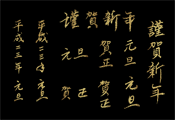 謹賀新年
謹賀新年
元旦
元旦
賀正
賀正
元旦
賀正
平成二二年 元旦
平成二三年 元旦